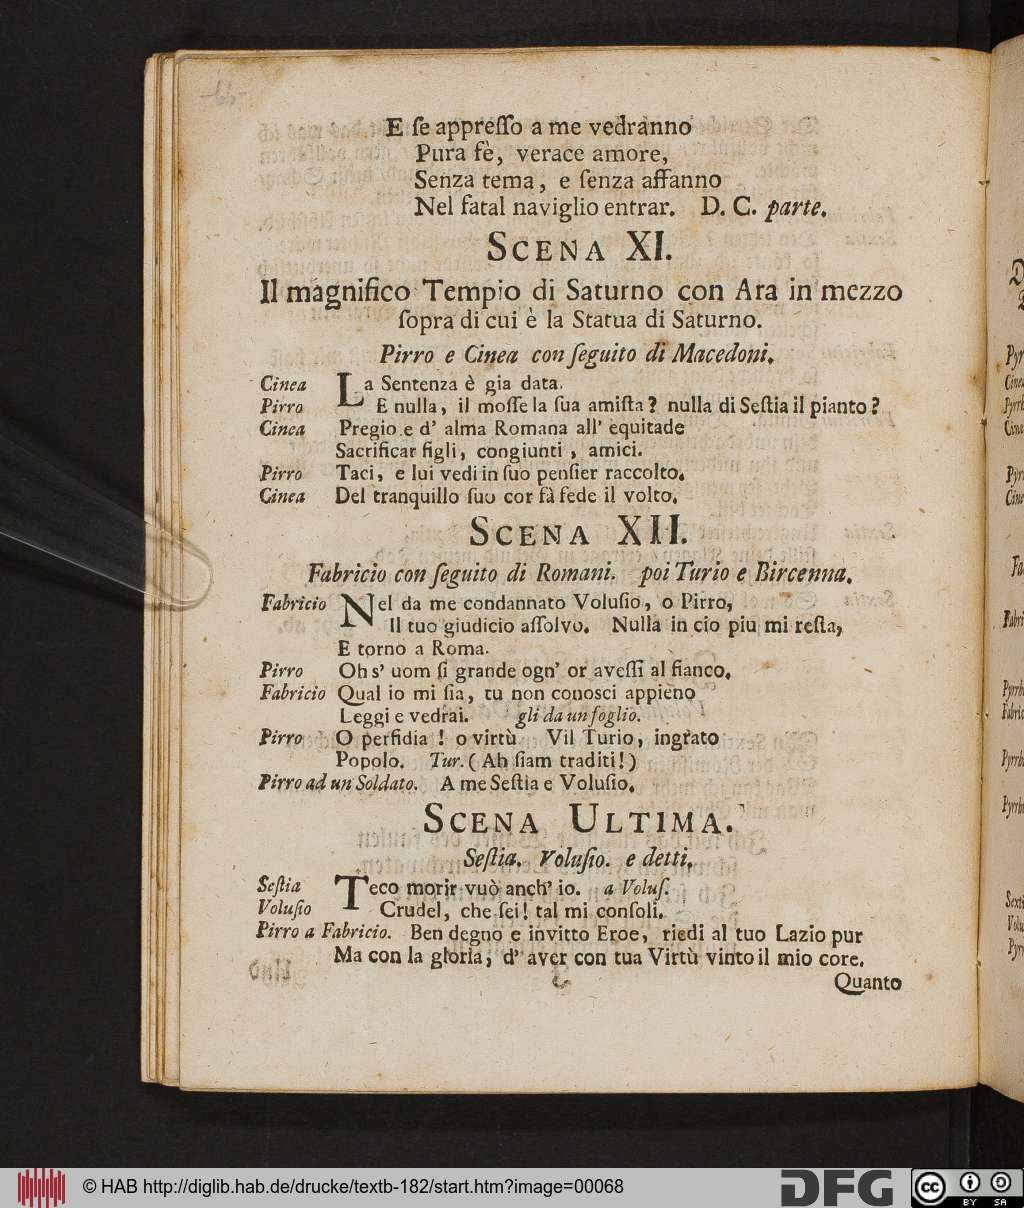 E ſe appreſſo a me vedranno
Pura fè, verace amore,
Senza tema, e ſenza affanno
Nel fatal naviglio entrar. D. C. parte.
SCENA XI.
Il magnifico Tempio di Saturno con Ara in mezzo
ſopra di cui è la Statua di Saturno.
Pirro e Cinea con ſeguito di Macedoni.
Cinea La Sentenza è gia data.
Pirro E nulla, il moſſe la ſua amiſta? nulla di Seſtia il pianto?
Cinea Pregio e d' alma Romana all' equitade
Sacrificar figli, congiunti, amici.
Pirro Taci, e lui vedi in ſuo penſier raccolto.
Cinea Del tranquillo ſuo cor fà fede il volto.
SCENA XII.
Fabricio con ſeguito di Romani. poi Turio e Bircenna.
Fabricio Nel da me condannato Voluſio, o Pirro,
Il tuo giudicio aſſolvo. Nulla in cio piu mi reſta,
E torno a Roma.
Pirro Oh s' uom ſi grande ogn' or aveſſi al fianco.
Fabricio Qual io mi ſia, tu non conosci appieno
Leggi e vedrai. gli da un foglio.
Pirro O perfidia! o virtù Vil Turio, ingrato
Popolo. Tur. (Ah ſiam traditi!)
Pirro ad un Soldato. A me Seſtia e Voluſio.
SCENA ULTIMA.
Seſtia. Voluſio. e detti.
Seſtia Teco morir vuò anch' io. a Voluſ.
Voluſio Crudel, che ſei! tal mi conſoli.
Pirro a Fabricio. Ben degno e invitto Eroe, riedi al tuo Lazio pur
Ma con la gloria, d' aver con tua Virtù vinto il mio core.
Quanto
© HAB http://diglib.hab.de/drucke/textb-182/start.htm?image=00068
DFG
cc BY SA